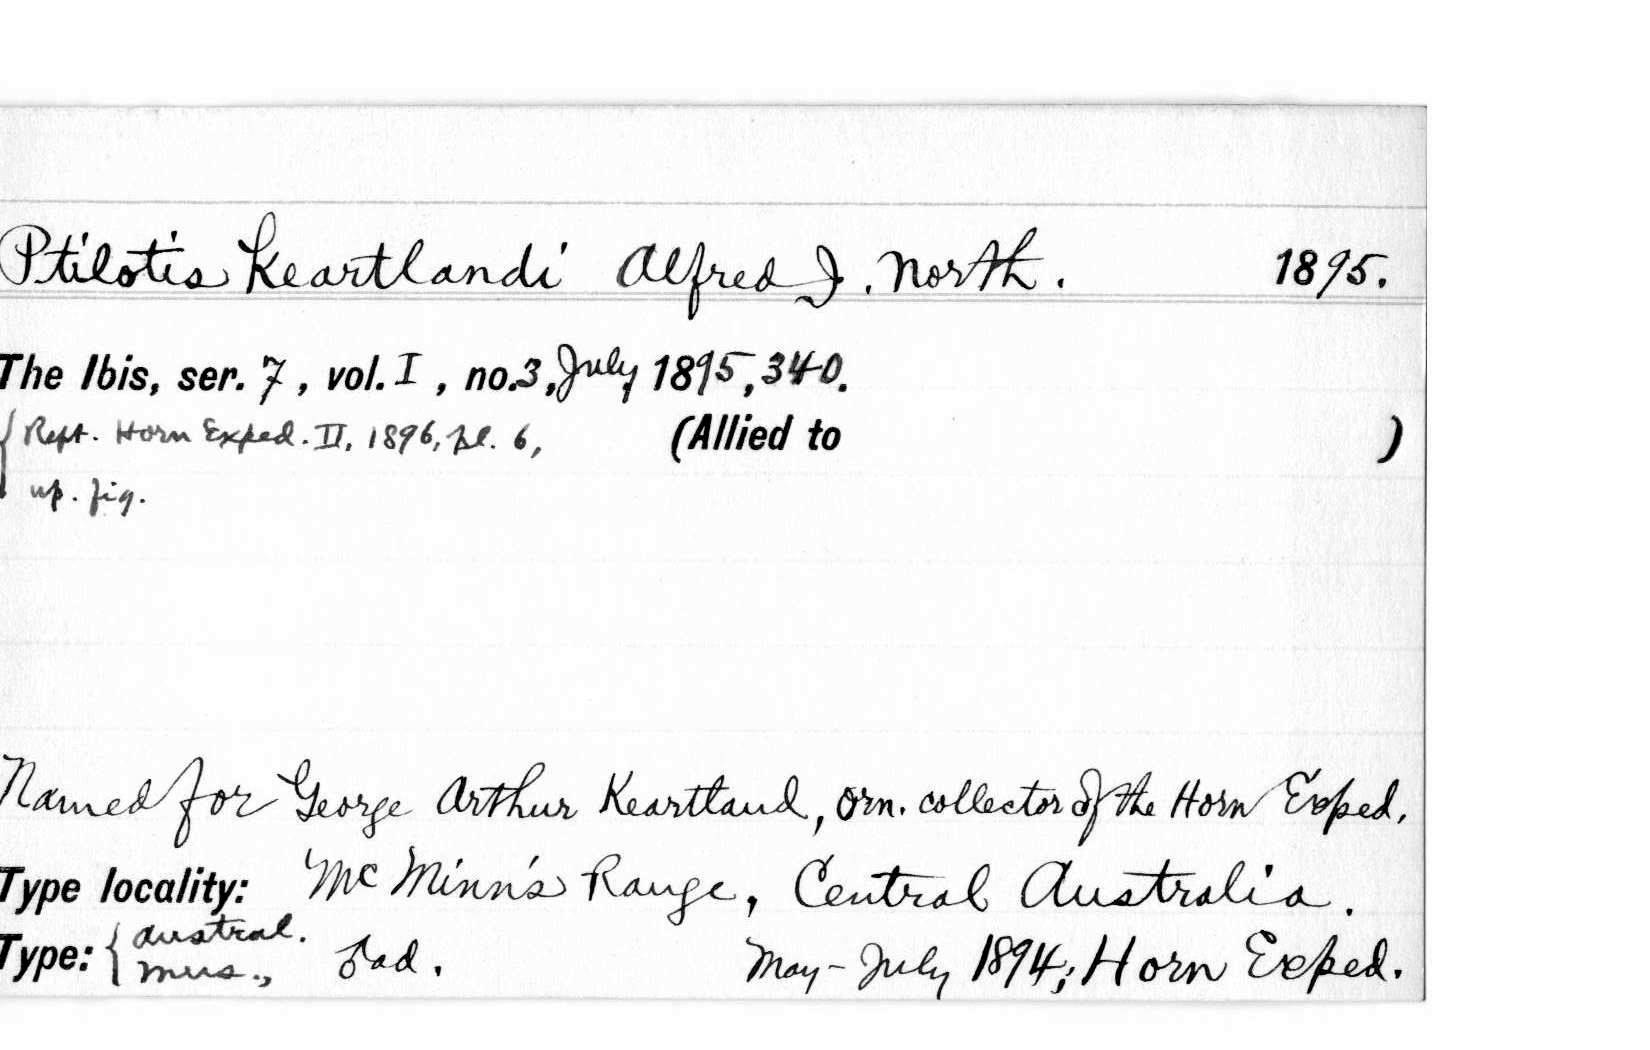 Ptilotis Keartlandi Alfred J. North. 1895.
The Ibis, ser. 7, vol. I, no. 3, July 1895, 340.
{ Rept. Horn Exped. II, 1896, pl. 6, (Allied to )
up. fig.
Named for George Arthur Keartland, orn. collector of the Horn Exped.
Type locality: McMinn's Range, Central Australia.
Type: { Austral. Mus., ad. May-July 1894; Horn Exped.